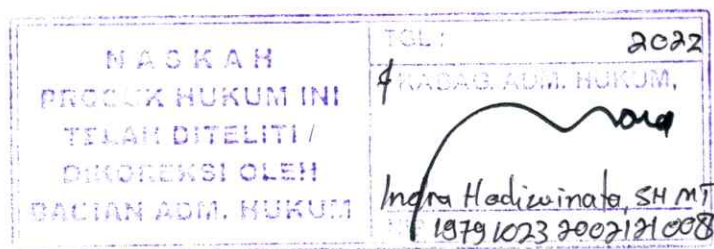 NASKAH
PRODUK HUKUM INI
TELAH DITELITI /
DIKOREKSI OLEH
BAGIAN ADM. HUKUM
TGL: 2022
KABAG. ADM. HUKUM,
Indra Hadiwinata, SH MT
19791023 200212 1 008